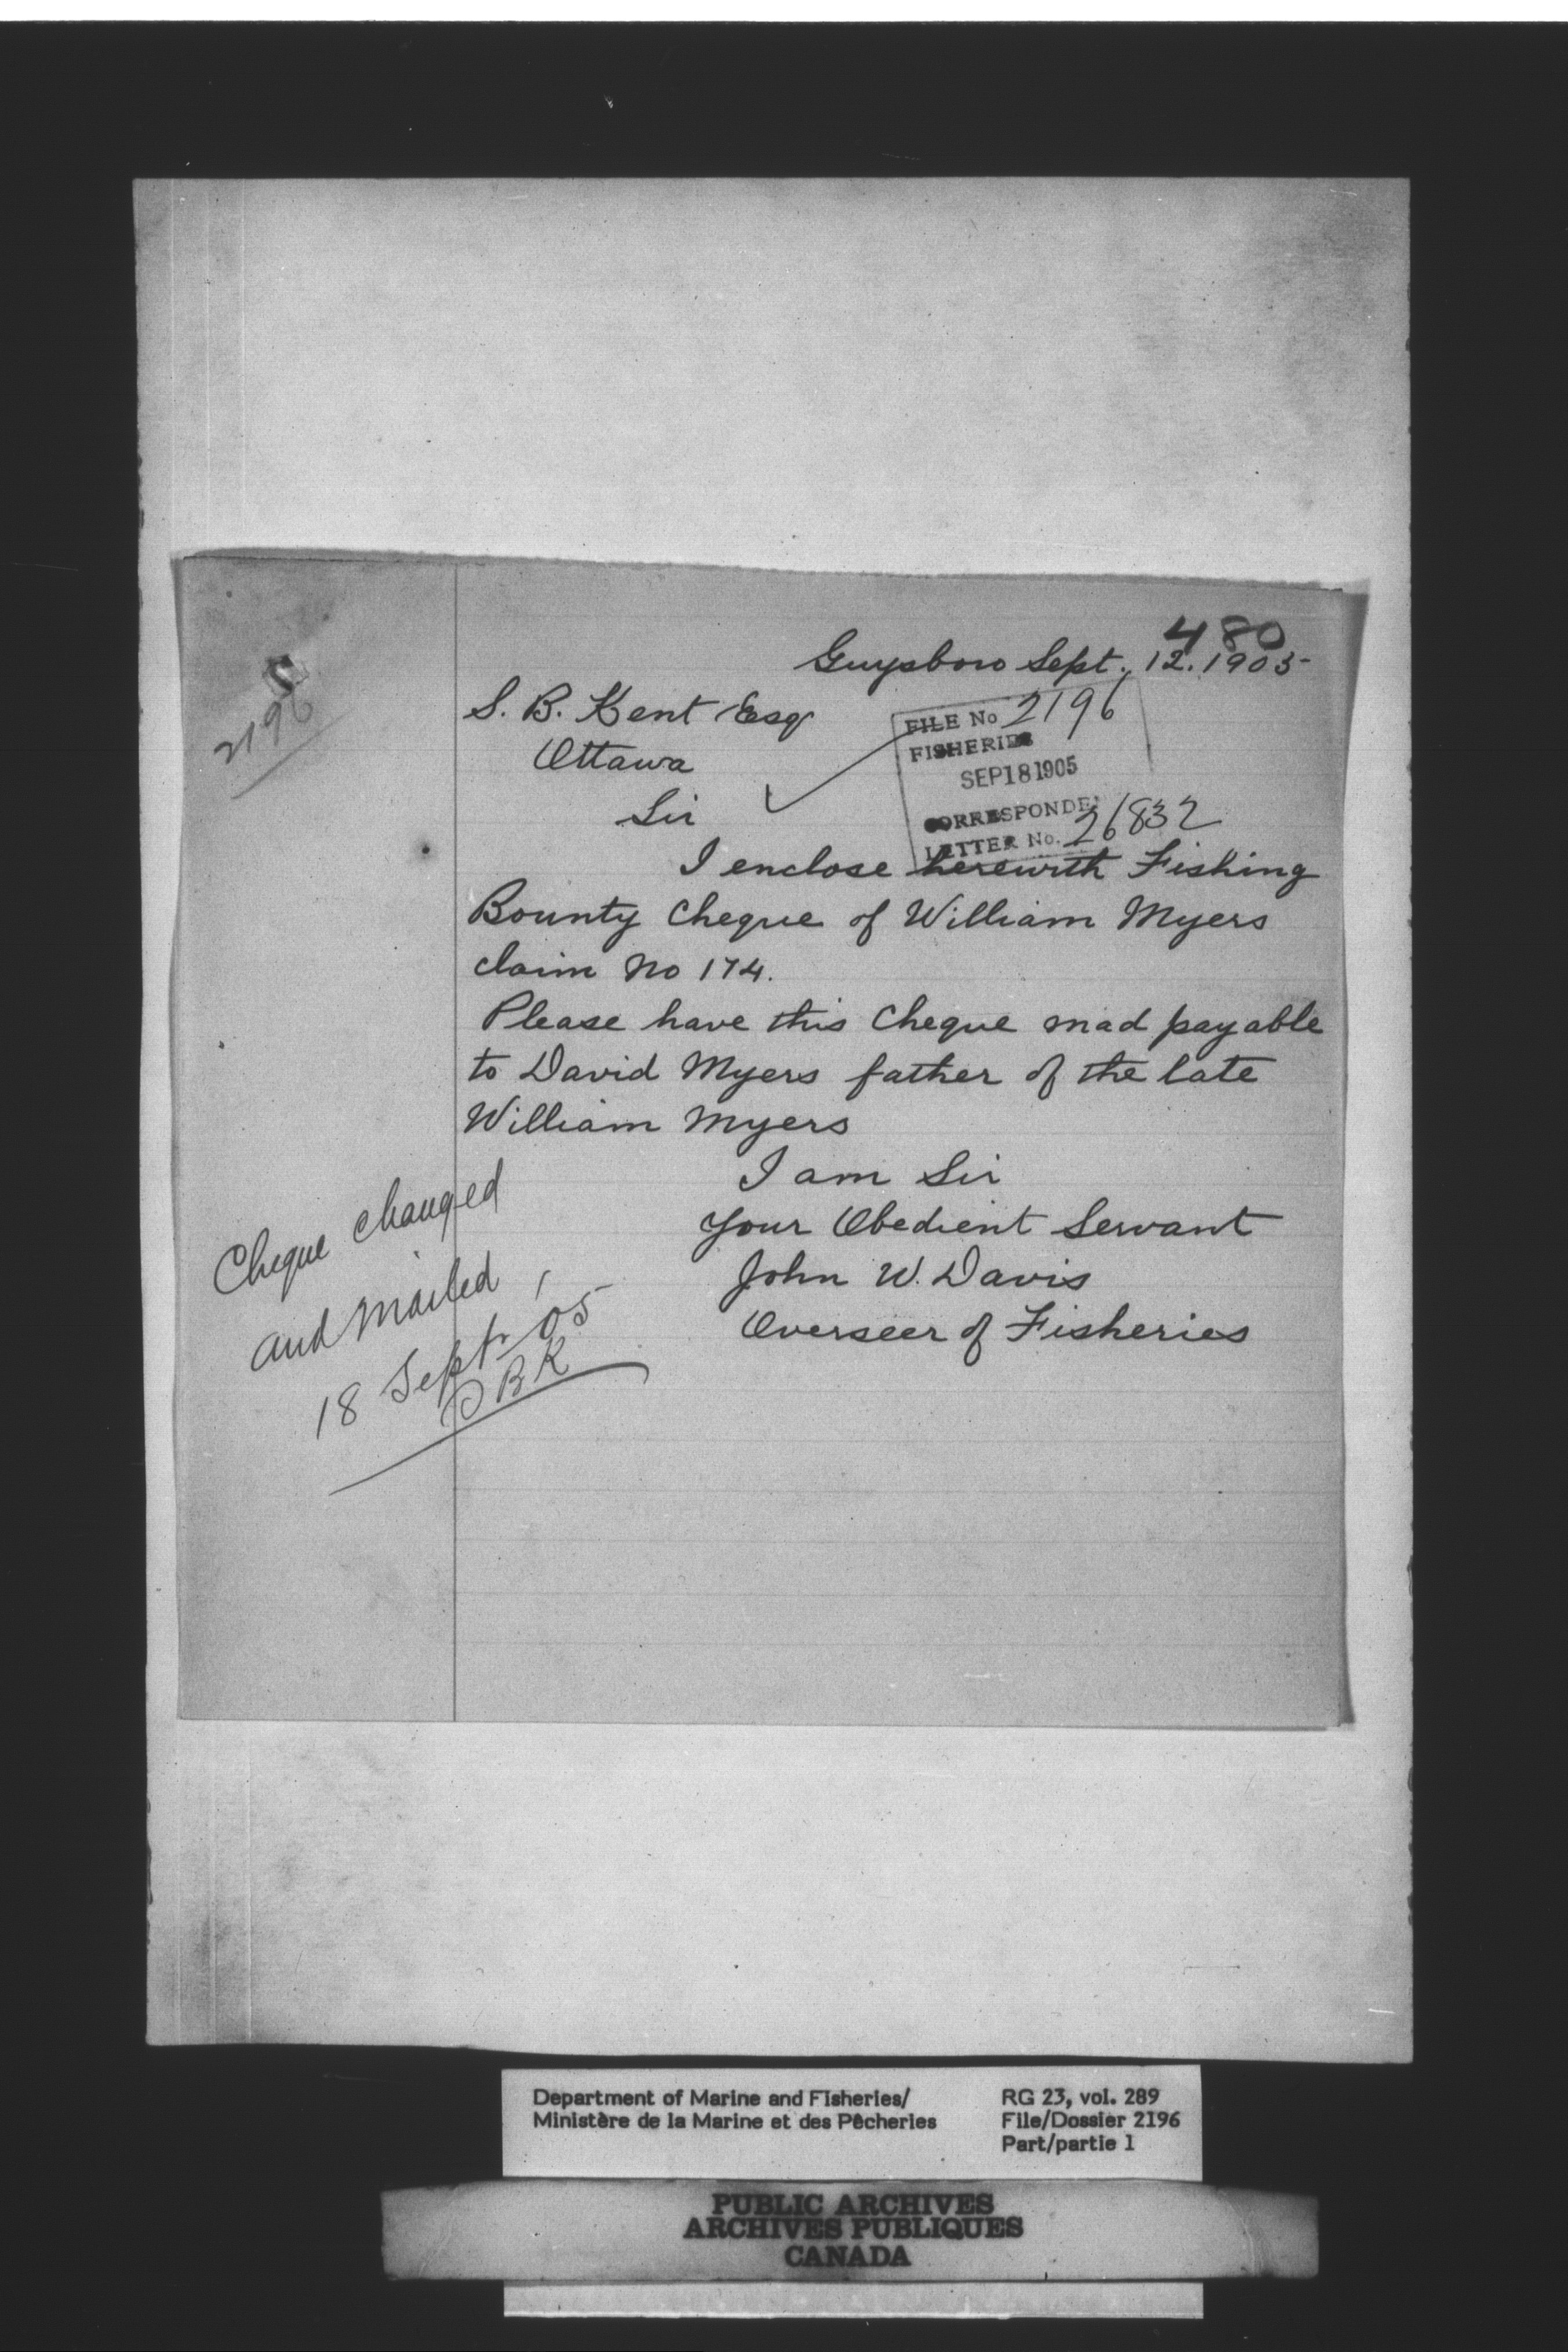 480
Guysboro Sept. 12. 1905
2196
S. B. Kent Esq
Ottawa
Sir
FILE No 2196
FISHERIES
SEP 18 1905
CORRESPONDE
LETTER No. 26832
I enclose herewith Fishing
Bounty Cheque of William Myers
claim No 174.
Please have this Cheque mad payable
to David Myers father of the late
William Myers
I am Sir
Your Obedient Servant
John W. Davis
Overseer of Fisheries
Cheque changed
and mailed
18 Sept 05
Department of Marine and Fisheries/
Ministère de la Marine et des Pêcheries
RG 23, vol. 289
File/Dossier 2196
Part/partie 1
PUBLIC ARCHIVES
ARCHIVES PUBLIQUES
CANADA